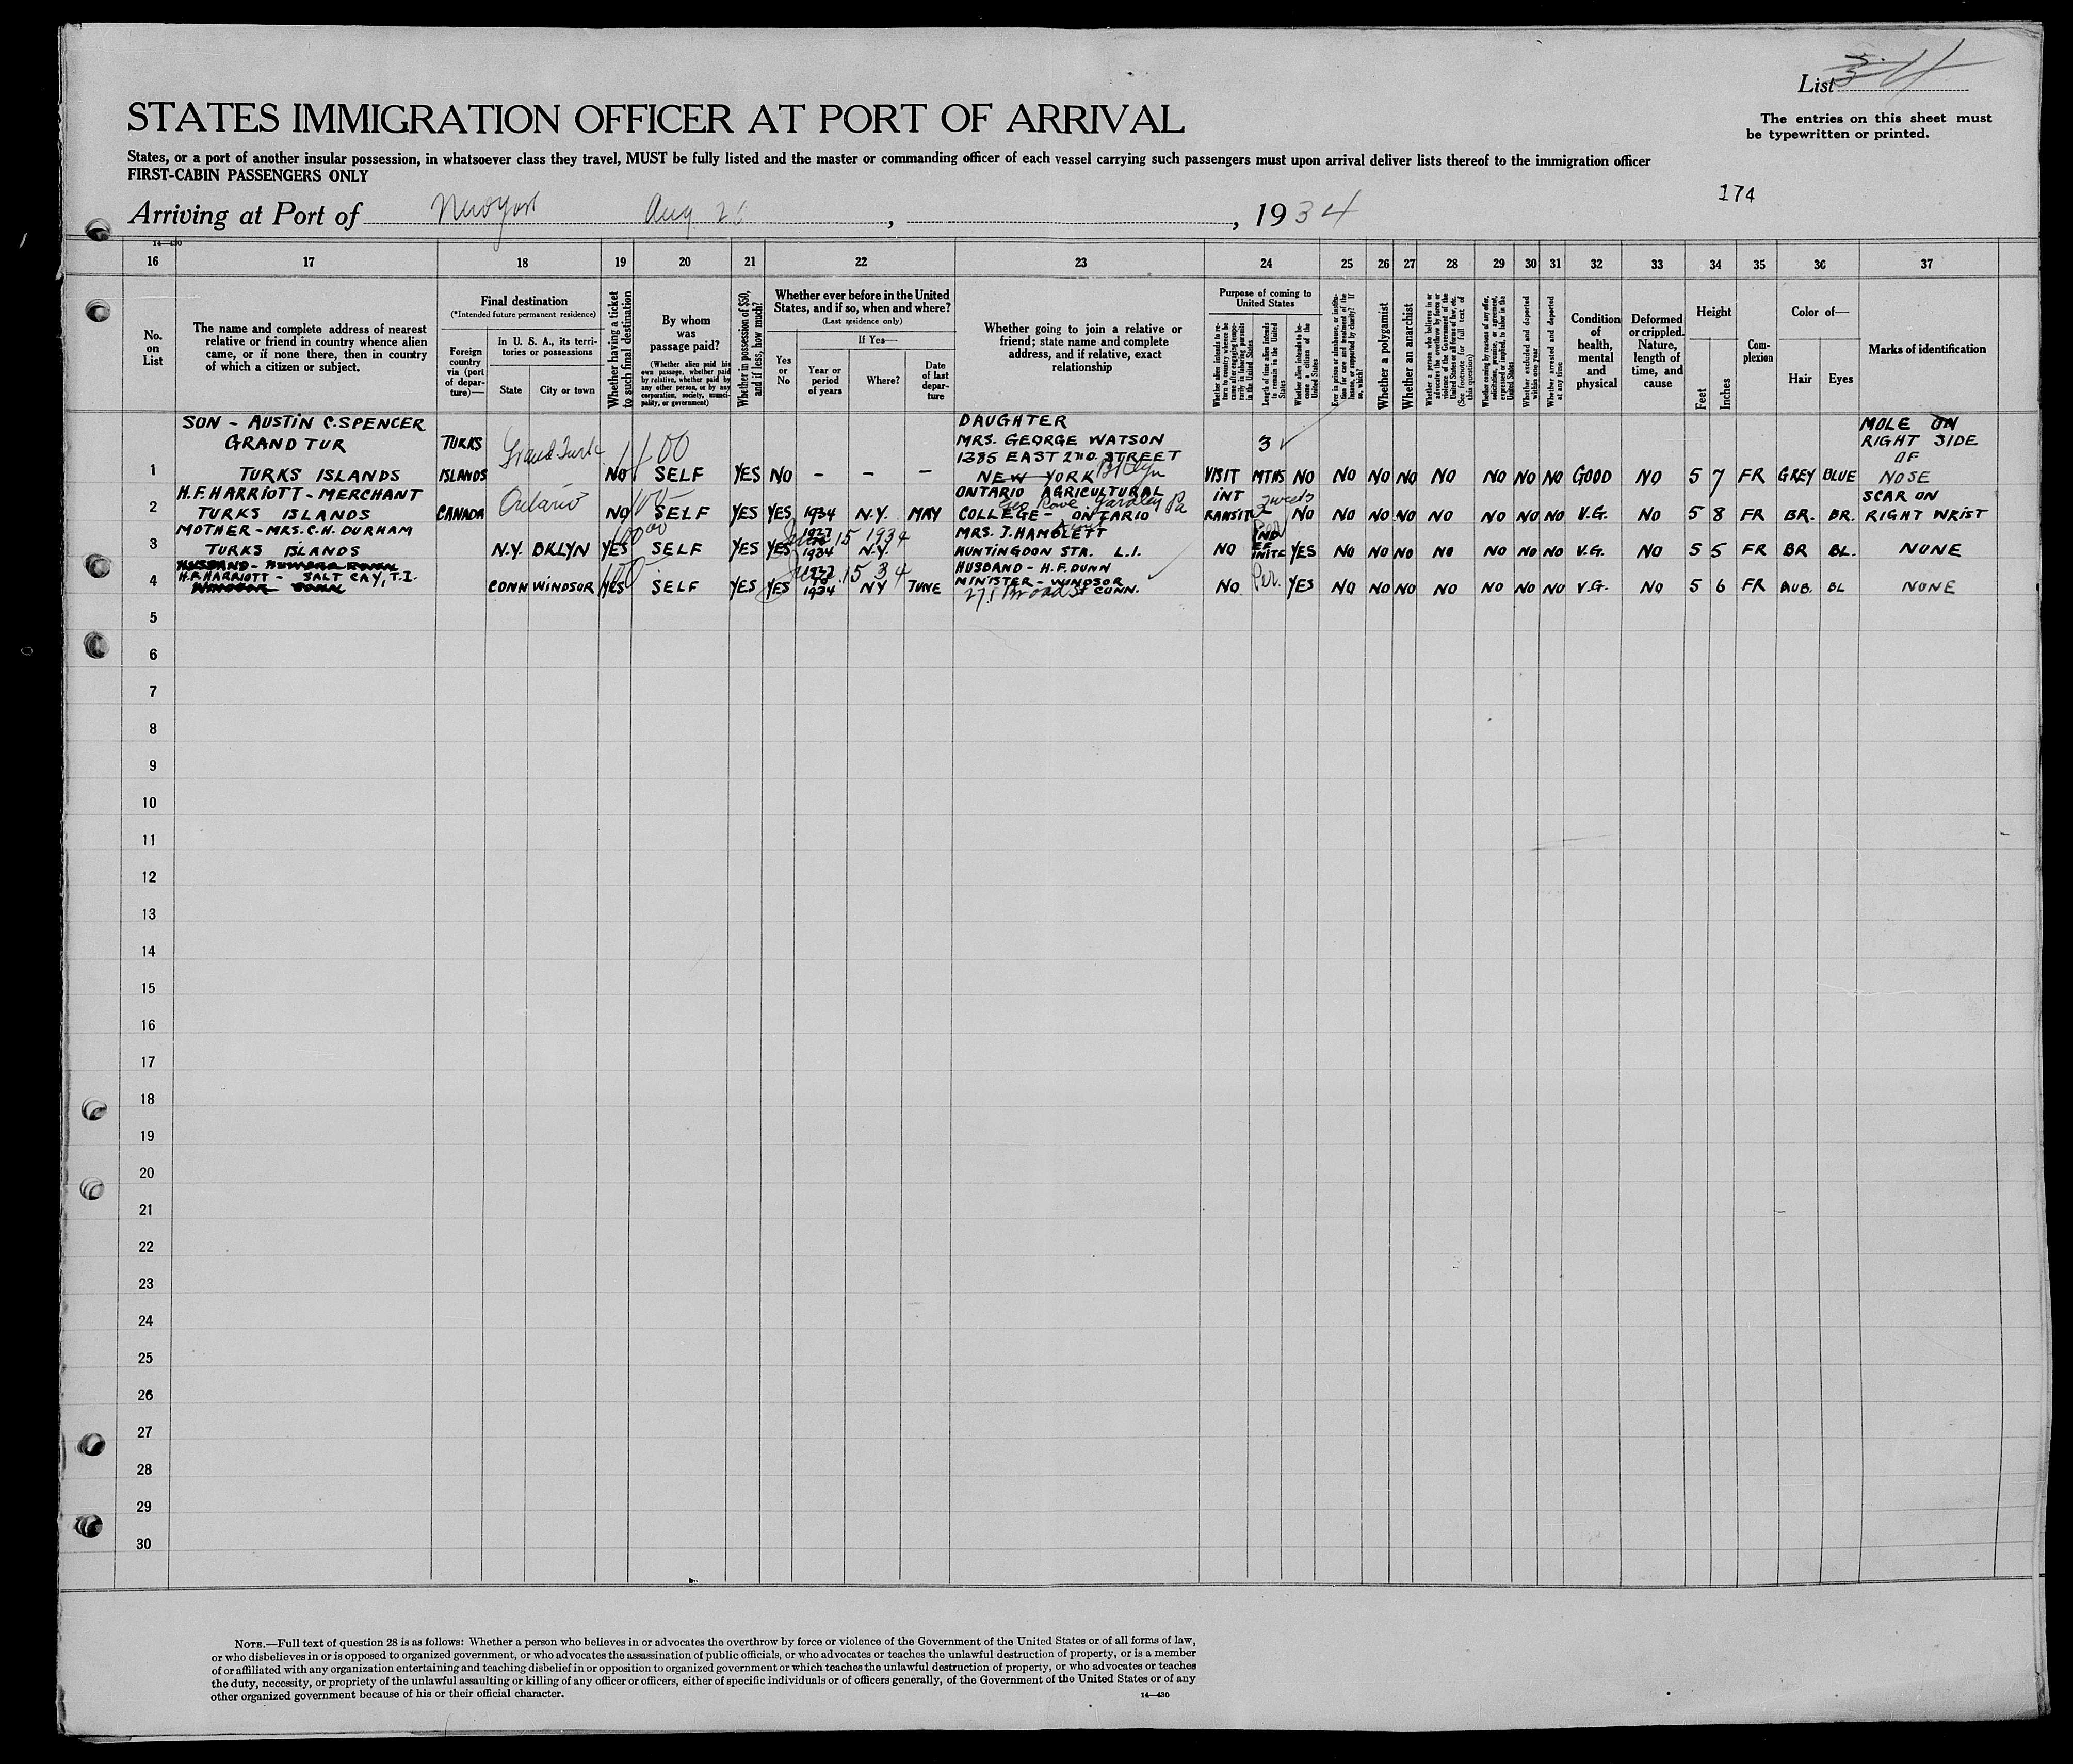 List
STATES IMMIGRATION OFFICER AT PORT OF ARRIVAL
The entries on this sheet must
be typewritten or printed.
States, or a port of another insular possession, in whatsoever class they travel, MUST be fully listed and the master or commanding officer of each vessel carrying such passengers must upon arrival deliver lists thereof to the immigration officer
FIRST-CABIN PASSENGERS ONLY
174
Arriving at Port of New York Aug 26, , 1934
14—430
16 17 18 19 20 21 22 23 24 25 26 27 28 29 30 31 32 33 34 35 36 37
No. on List
The name and complete address of nearest
relative or friend in country whence alien
came, or if none there, then in country
of which a citizen or subject.
Final destination
(*Intended future permanent residence)
Foreign country via (port of departure)—
In U. S. A., its territories or possessions
State
City or town
Whether having a ticket to such final destination
By whom was passage paid?
(Whether alien paid his own passage, whether paid by relative, whether paid by any other person, or by any corporation, society, municipality, or government)
Whether in possession of $50, and if less, how much?
Whether ever before in the United
States, and if so, when and where?
(Last residence only)
If Yes—
Yes or No
Year or period of years
Where?
Date of last departure
Whether going to join a relative or
friend; state name and complete
address, and if relative, exact
relationship
Purpose of coming to United States
Whether alien intends to return to country whence he came after engaging temporarily in laboring pursuits in the United States
Length of time alien intends to remain in the United States
Whether alien intends to become a citizen of the United States
Ever in prison or almshouse, or institution for care and treatment of the insane, or supported by charity? If so, which?
Whether a polygamist
Whether an anarchist
Whether a person who believes in or advocates the overthrow by force or violence of the Government of the United States or all forms of law, etc. (See footnote for full text of this question)
Whether coming by reasons of any offer, solicitation, promise, or agreement, expressed or implied, to labor in the United States
Whether excluded and deported within one year
Whether arrested and deported at any time
Condition of health, mental and physical
Deformed or crippled. Nature, length of time, and cause
Height
Feet
Inches
Complexion
Color of—
Hair
Eyes
Marks of identification
SON - AUSTIN C. SPENCER DAUGHTER MOLE ON
GRAND TUR TURKS Grand Turk 100 MRS. GEORGE WATSON 3 RIGHT SIDE
1385 EAST 2ND. STREET OF
1 TURKS ISLANDS ISLANDS NO SELF YES NO - - - NEW YORK Bklyn VISIT MTHS NO NO NO NO NO NO NO NO GOOD NO 5 7 FR GREY BLUE NOSE
H.F. HARRIOTT - MERCHANT Ontario 100 ONTARIO AGRICULTURAL INT 2 weeks SCAR ON
2 TURKS ISLANDS CANADA NO SELF YES YES 1934 N.Y. MAY COLLEGE - ONTARIO Yardley Pa RANSIT NO NO NO NO NO NO NO NO V.G. NO 5 8 FR BR. BR. RIGHT WRIST
MOTHER - MRS. C.H. DURHAM 100 15 1934 MRS. J. HAMBLETT
3 TURKS ISLANDS N.Y. BKLYN YES SELF YES YES 1934 N.Y. HUNTINGDON STA. L.I. NO INDEFINITE YES NO NO NO NO NO NO NO V.G. NO 5 5 FR BR BL. NONE
HUSBAND -
H.F. HARRIOTT - SALT CAY, T.I. 100 15 34 HUSBAND - H.F. DUNN
4 WINDSOR CONN CONN WINDSOR YES SELF YES YES 1934 NY JUNE MINISTER - WINDSOR NO Per. YES NO NO NO NO NO NO NO V.G. NO 5 6 FR AUB. BL NONE
271 Broad St CONN.
5
6
7
8
9
10
11
12
13
14
15
16
17
18
19
20
21
22
23
24
25
26
27
28
29
30
NOTE.—Full text of question 28 is as follows: Whether a person who believes in or advocates the overthrow by force or violence of the Government of the United States or of all forms of law,
or who disbelieves in or is opposed to organized government, or who advocates the assassination of public officials, or who advocates or teaches the unlawful destruction of property, or is a member
of or affiliated with any organization entertaining and teaching disbelief in or opposition to organized government or which teaches the unlawful destruction of property, or who advocates or teaches
the duty, necessity, or propriety of the unlawful assaulting or killing of any officer or officers, either of specific individuals or of officers generally, of the Government of the United States or of any
other organized government because of his or their official character.
14—430